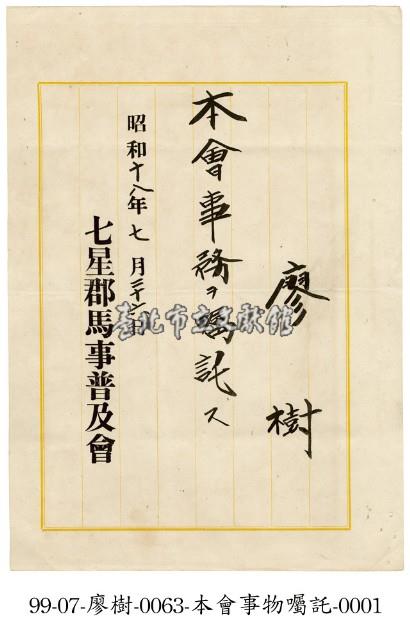 廖樹
本會事務ヲ囑託ス
昭和十八年七月日
七星郡馬事普及會
臺北市立文獻館
99-07-廖樹-0063-本會事物囑託-0001